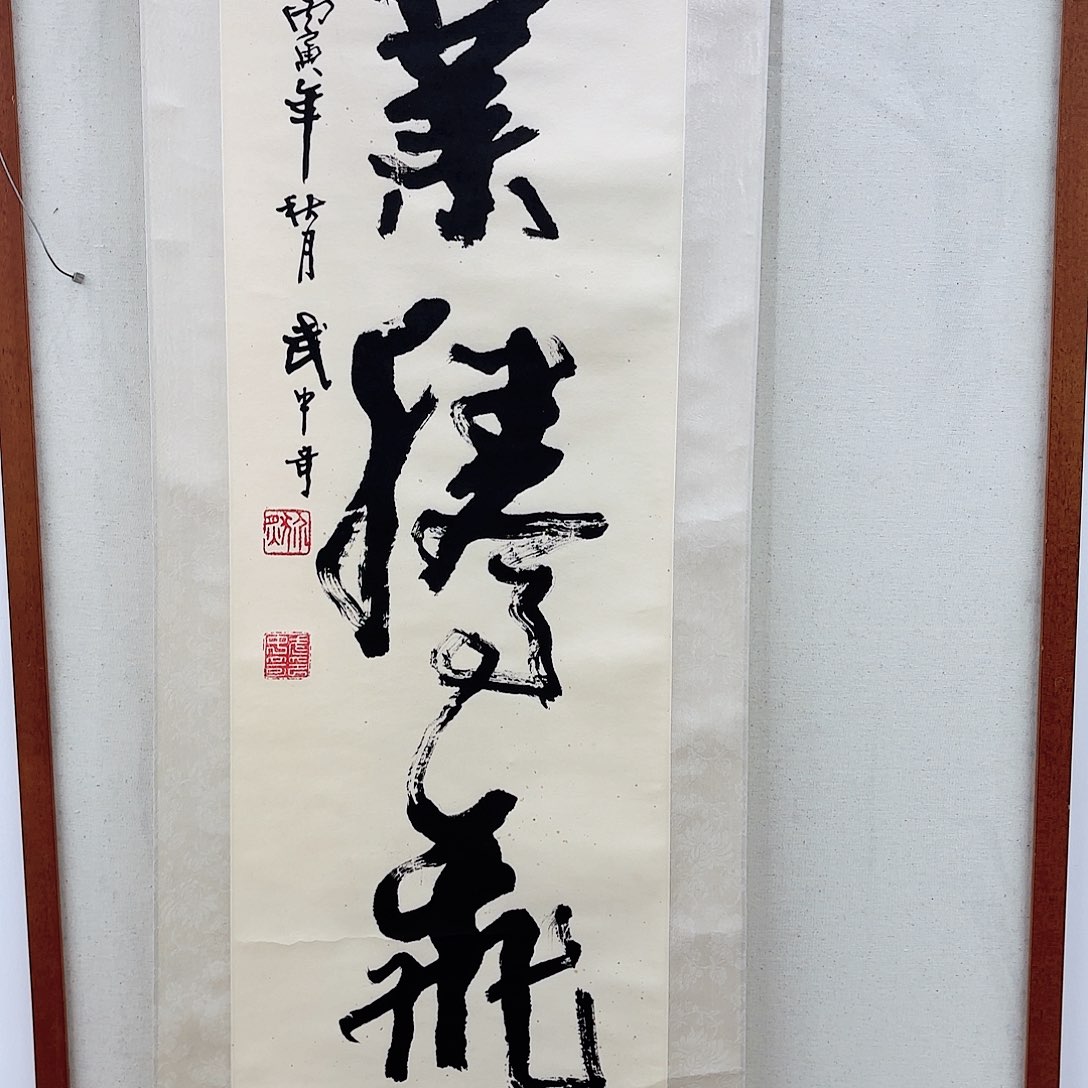 業騰飛
丙寅年秋月武中奇